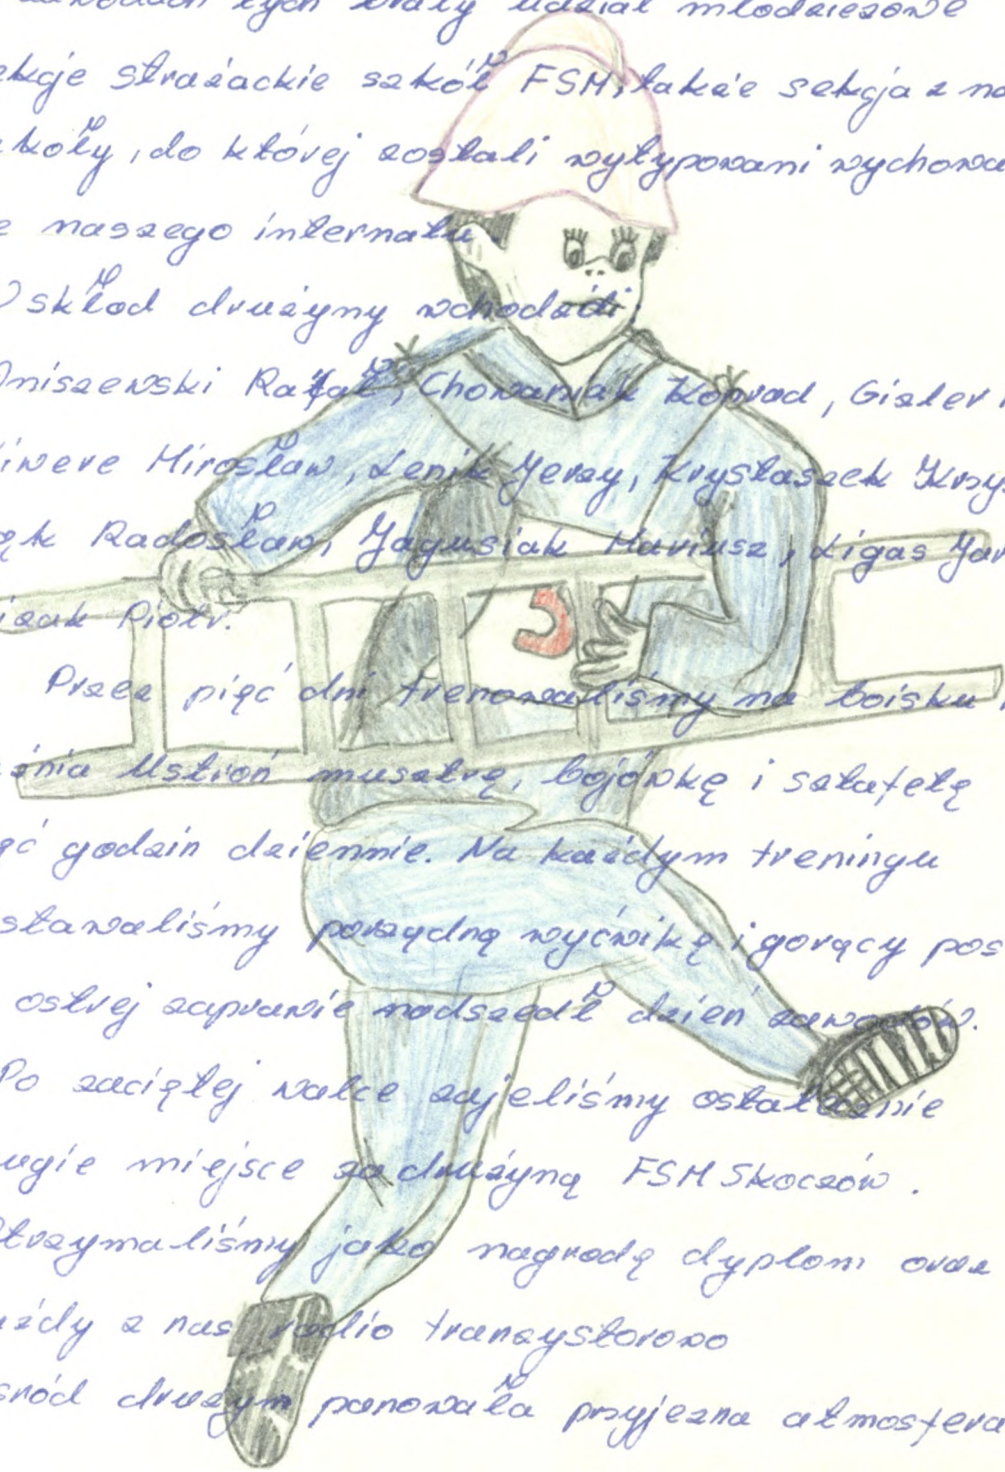 zawodach tych brały udział młodzieżowe
ekcje strażackie szkół FSM, także sekcja z na
zkoły, do której zostali wytypowani wychowa
e naszego internatu.
skład drużyny wchodzili
Oniszewski Rafał, Chowaniak Konrad, Gizler
Mirosław, Lenik Jerzy, Krystaszek Krzys
ąk Radosław, Jagusiak Mariusz, Ligas Jar
izak Piotr.
Przez pięć dni trenowaliśmy na boisku
Ustroń musztrę, bojówkę i sztafetę
ęć godzin dziennie. Na każdym treningu
stawaliśmy porządną wyćwikę i gorący pos
ostrej zaprawie nadszedł dzień zawodów.
Po zaciętej walce zajeliśmy ostatecznie
ugie miejsce za drużyną FSM Skoczów.
trzymaliśmy jako nagrodę dyplom oraz
ażdy z nas radio tranzystorowo
śród drużym panowała przyjezna atmosfera